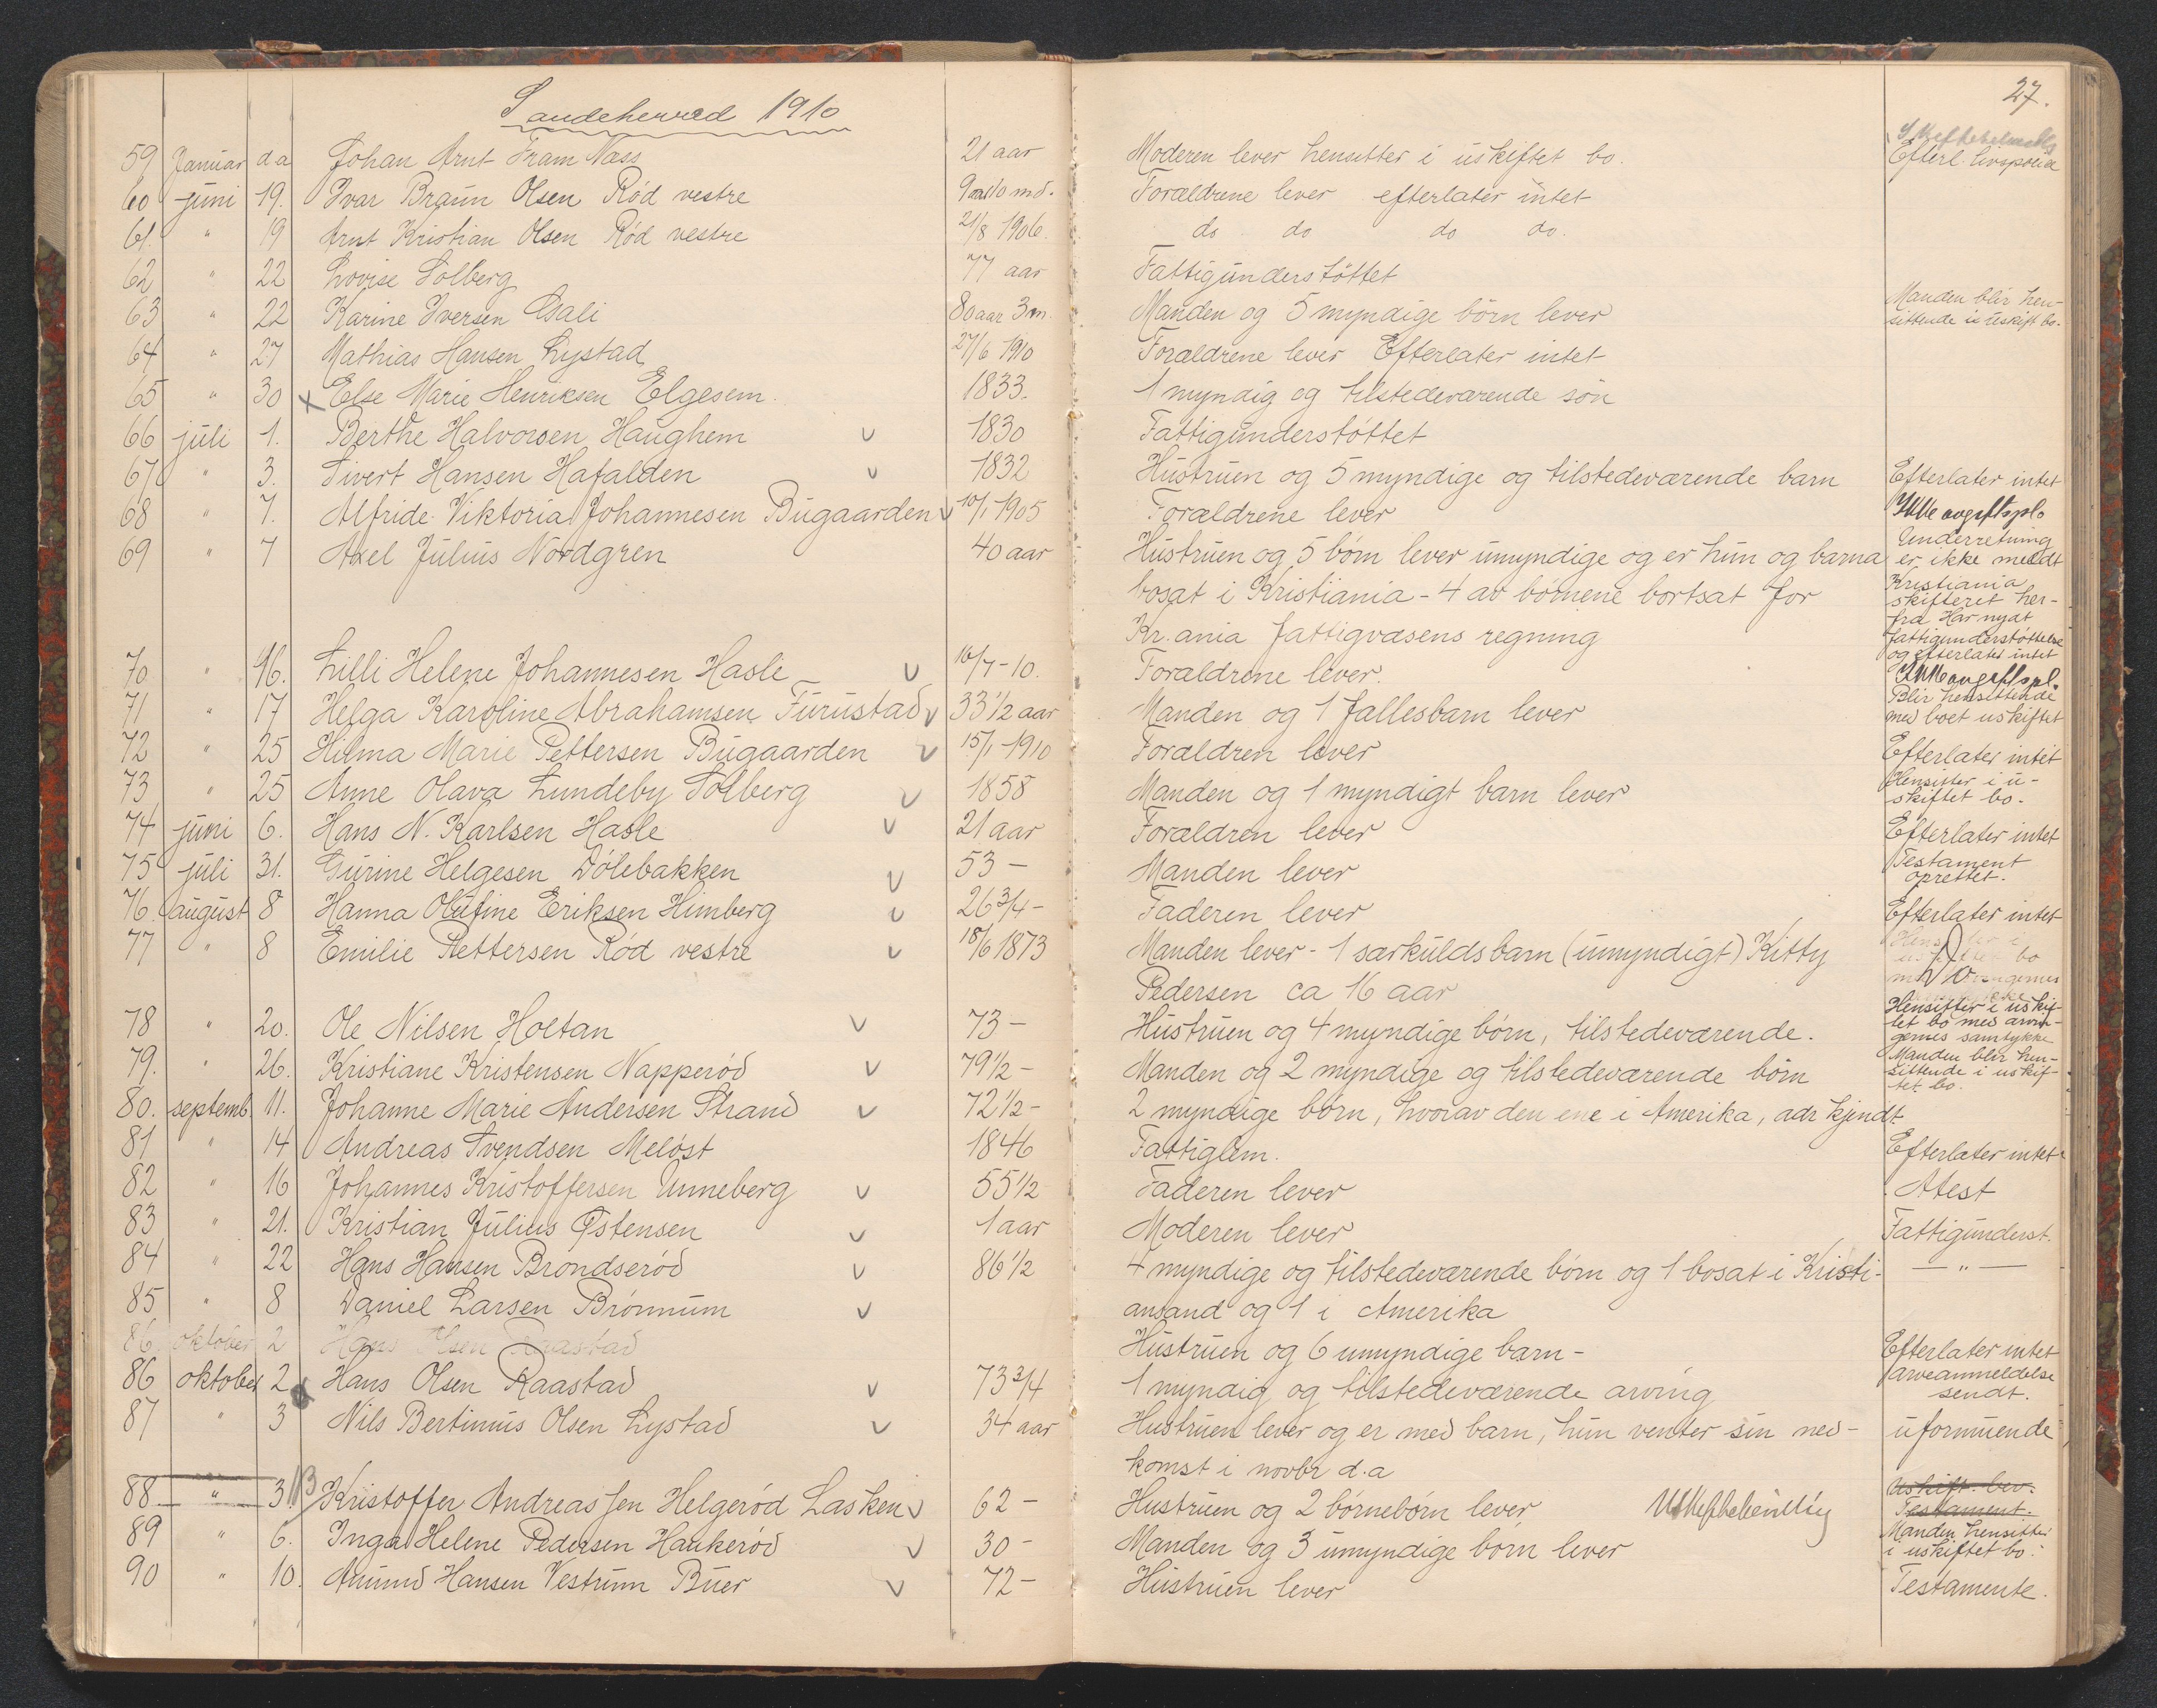 Sandeherred 1910
27.
59 Januar d a Johan Arnt Fram Næss 21 aar Moderen lever hensitter i uskiftet bo. Efterl. livspolice
60 juni 19. Ivar Braun Olsen Rød vestre 9 aar 10 md. Forældrene lever efterlater intet
61. " 19 Arnt Kristian Olsen Rød vestre 21/8 1906. do do do do.
62 " 22 Lovise Solberg 77 aar Fattigunderstøttet
63 " 22 Karine Iversen Gali 80 aar 3 m. Manden og 5 myndige børn lever Manden blir hen-
sittende i uskift bo.
64 " 27 Mathias Hansen Lystad 27/6 1910 Forældrene lever Efterlater intet
65 " 30 x Else Marie Henriksen Elgesem. 1833. 1 myndig og tilstedeværende søn
66 juli 1. Berthe Halvorsen Haughem v 1830 Fattigunderstøttet
67 " 3. Sivert Hansen Hafalden v 1832 Hustruen og 5 myndige og tilstedeværende barn Efterlater intet
68 " 7. Alfride Viktoria Johannesen Bugaarden v 10/1 1905 Forældrene lever Ikke avgiftspl.
69 " 7 Axel Julius Nordgren 40 aar Hustruen og 5 børn lever umyndige og er hun og barna Underretning
er ikke meddt
bosat i Kristiania - 4 av børnene bortsat for Kristiania
skifteret her-
Kr.ania fattigvæsens regning fra Har nydt
fattigunderstøttelse
og efterlater intet
70 " 16. Lilli Helene Johannesen Hasle v 16/7-10. Forældrene lever. Ikke avgiftspl.
71 " 17 Helga Karoline Abrahamsen Furustad v 33 1/2 aar Manden og 1 fællesbarn lever Blir hensittende
med boet uskiftet
72 " 25 Hilma Marie Pettersen Bugaarden v 15/1 1910 Forældren lever Efterlater intet
73 " 25 Anne Olava Lundeby Solberg v 1858 Manden og 1 myndigt barn lever Hensitter i u-
skiftet bo.
74 juni 6. Hans N. Karlsen Hasle v 21 aar Forældren lever Efterlater intet
75 juli 31. Gurine Helgesen Dølebakken v 53 - Manden lever Testament
oprettet.
76 august 8 Hanna Olufine Eriksen Himberg v 26 3/4 - Faderen lever Efterlater intet
77 " 8 Emilie Pettersen Rød vestre v 18/6 1873 Manden lever - 1 særkuldsbarn (umyndigt) Kitty
Pedersen ca 16 aar
78 " 20. Ole Nilsen Holtan v 73 - Hustruen og 4 myndige børn, tilstedeværende. Hensitter i uskif-
tet bo med arvin-
gernes samtykke
79. " 26. Kristiane Kristensen Napperød v 79 1/2 - Manden og 2 myndige og tilstedeværende børn Manden blir hen-
sittende i uskif-
tet bo.
80. septemb 11. Johanne Marie Andersen Strand v 72 1/2 - 2 myndige børn, hvorav den ene i Amerika, adr kjendt.
81 " 14 Andreas Svendsen Meløst 1846 Fattiglem. Efterlater intet
82 " 16 Johannes Kristoffersen Unneberg v 55 1/2 Faderen lever Atest
83 " 21. Kristian Julius Østensen v 1 aar Moderen lever Fattigunderst.
84 " 22 Hans Hansen Brondserød v 86 1/2 4 myndige og tilstedeværende børn og 1 bosat i Kristi- - " -
85 " 8 Daniel Larsen Brønnum v ansand og 1 i Amerika
86. oktober 2 Hans Olsen Raastad Hustruen og 6 umyndige barn - Efterlater intet
86 oktober 2 Hans Olsen Raastad v 73 3/4 1 myndig og tilstedeværende arving arveanmeldelse
sendt.
87 " 3 Nils Bertinius Olsen Lystad v 34 aar Hustruen lever og er med barn, hun venter sin ned- uformuende
komst i novbr d.a
88 " 3. 13 Kristoffer Andreassen Helgerød Lasken v 62 - Hustruen og 2 børnebørn lever Uskift. bev.
Testament.
89 " 6. Inga Helene Pedersen Haukerød v 30 - Manden og 3 umyndige børn lever Manden hensitter
i uskiftet bo.
90 " 10. Amund Hansen Vestrum Buer v 72 - Hustruen lever Testamente.